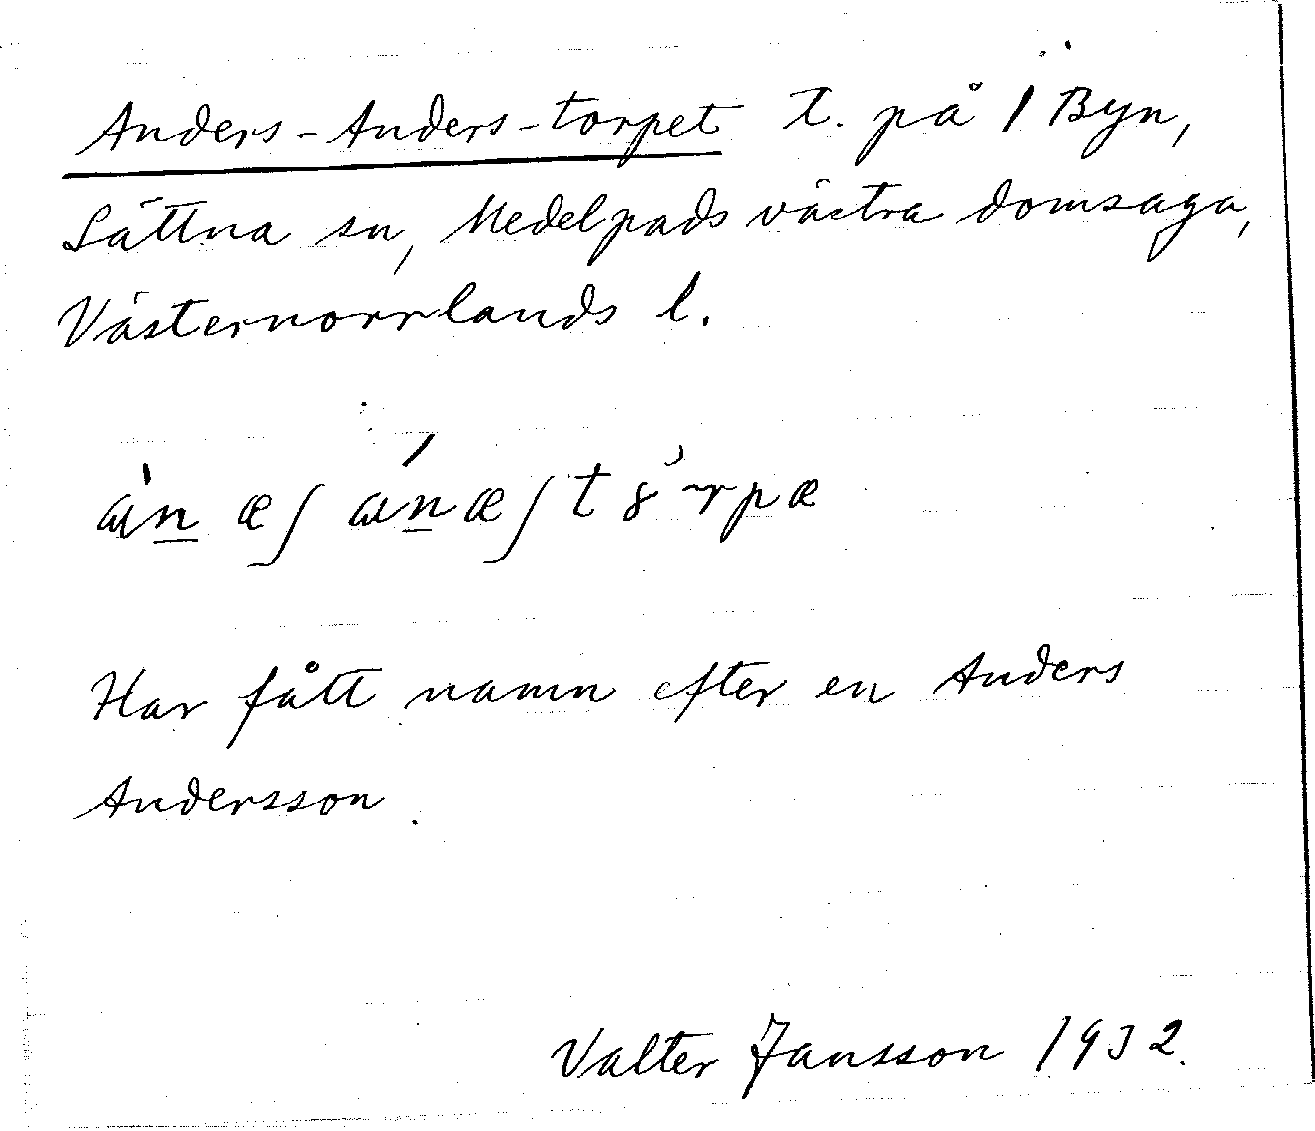 Anders-Anders-torpet t. på 1 Byn,
Sättna sn, Medelpads västra domsaga,
Västernorrlands l.
Har fått namn efter en Anders
Andersson.
Valter Jansson 1932.